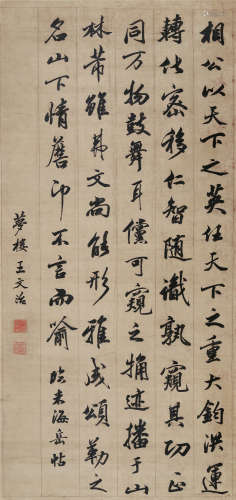 相公以天下之英任天下之重大鈞洪運
轉化密移仁智隨識孰窺其功正
同万物鼓舞耳儻可窺之
迹播于山
林芾雖弗文尚能形雅成頌勒之
名山下情蘄印不言而喻 臨米海岳帖
夢樓王文治